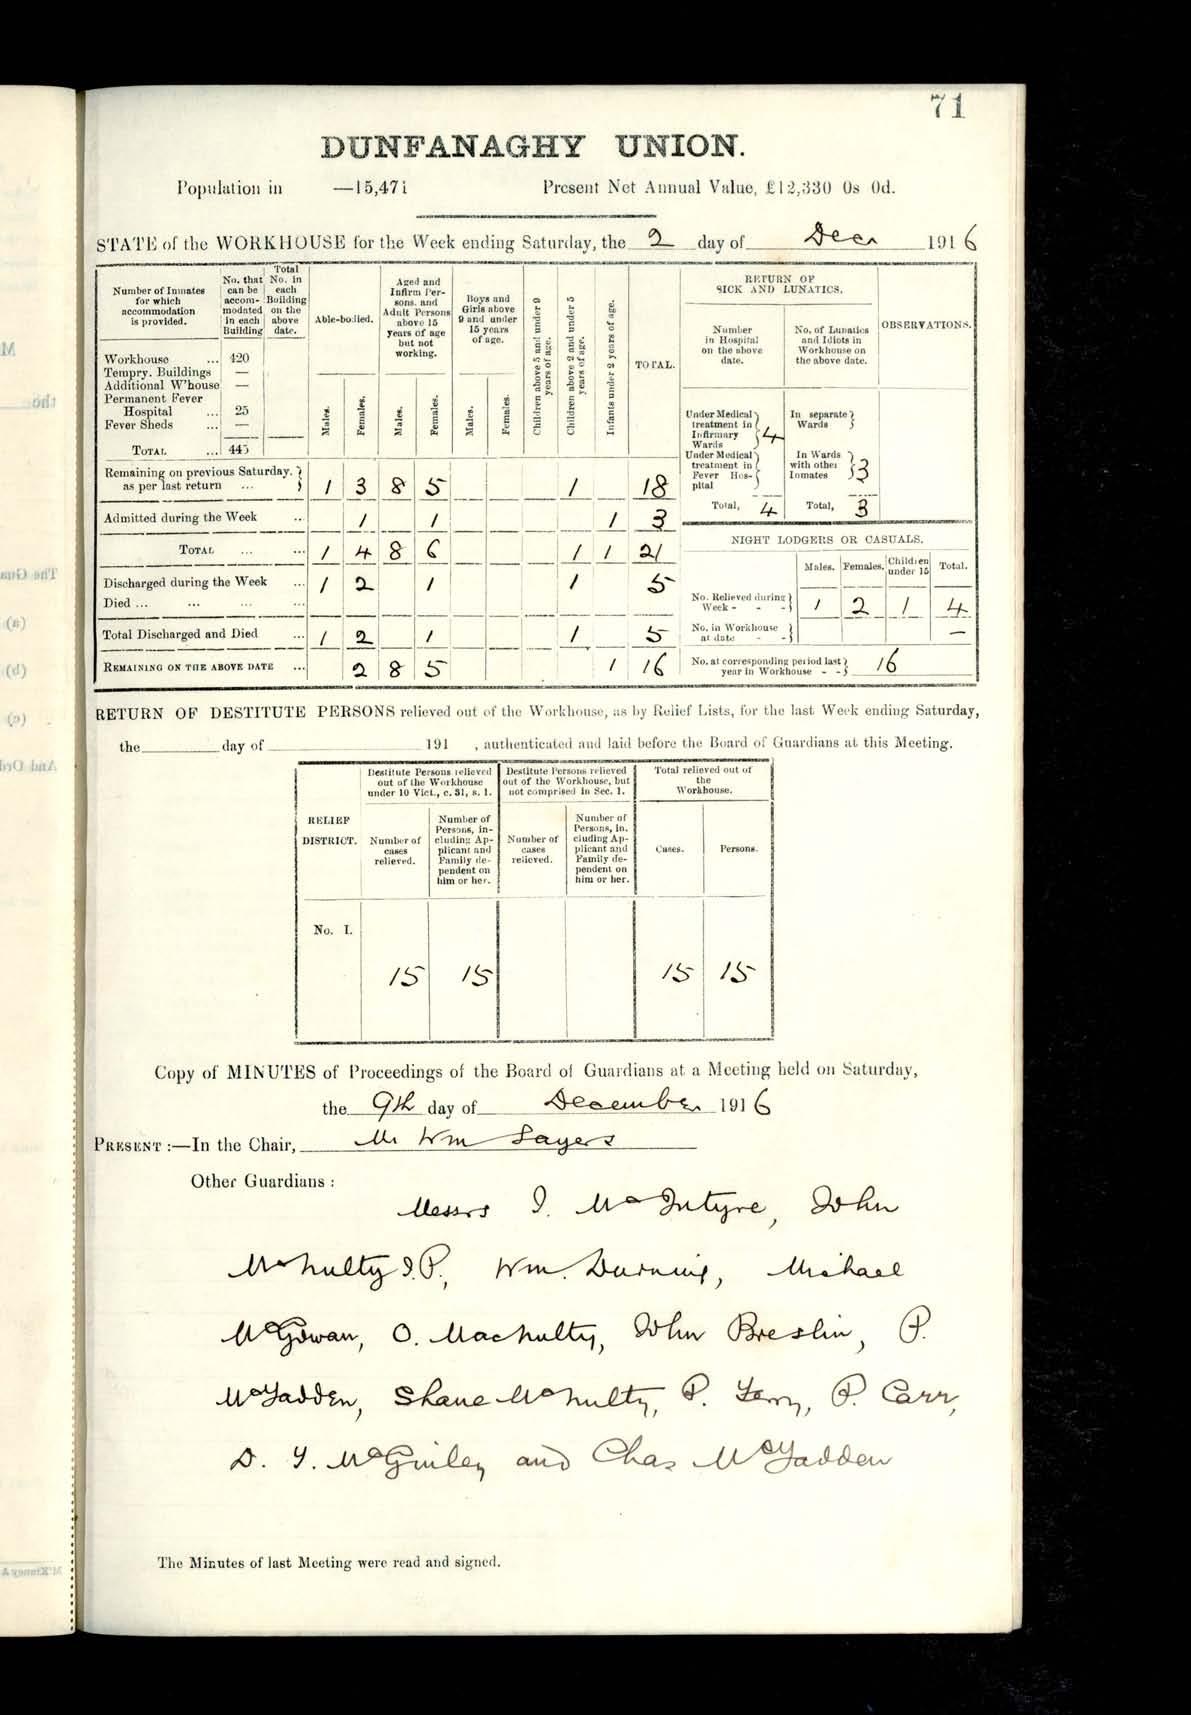 71
DUNFANAGHY UNION.
Population in —15,471 Present Net Annual Value, £12,330 0s 0d.
STATE of the WORKHOUSE for the Week ending Saturday, the 2 day of Decr 1916
Number of Inmates for which accommodation is provided.
No. that can be accom- modated in each Building
Total No. in each Building on the above date.
Able-bodied.
Aged and Infirm Per- sons, and Adult Persons above 15 years of age but not working.
Boys and Girls above 9 and under 15 years of age.
Children above 5 and under 9 years of age.
Children above 2 and under 5 years of age.
Infants under 2 years of age.
TOTAL.
RETURN OF SICK AND LUNATICS.
Number in Hospital on the above date.
No. of Lunatics and Idiots in Workhouse on the above date.
OBSERVATIONS.
Males. Females. Males. Females. Males. Females.
Workhouse ... 420
Tempry. Buildings —
Additional W'house —
Permanent Fever
Hospital ... 25
Fever Sheds ... —
TOTAL ... 445
Remaining on previous Saturday, as per last return ... 1 3 8 5 1 18
Admitted during the Week ... 1 1 1 3
TOTAL ... ... 1 4 8 6 1 1 21
Discharged during the Week ... 1 2 1 1 5
Died ... ... ... ...
Total Discharged and Died ... 1 2 1 1 5
REMAINING ON THE ABOVE DATE ... 2 8 5 1 16
Under Medical treatment in Infirmary Wards 4
In separate Wards
Under Medical treatment in Fever Hos- pital
In Wards with other Inmates 3
Total, 4 Total, 3
NIGHT LODGERS OR CASUALS.
Males. Females. Children under 15 Total.
No. Relieved during Week - - - 1 2 1 4
No. in Workhouse at date - - —
No. at corresponding period last year in Workhouse - - 16
RETURN OF DESTITUTE PERSONS relieved out of the Workhouse, as by Relief Lists, for the last Week ending Saturday,
the day of 191 , authenticated and laid before the Board of Guardians at this Meeting.
RELIEF DISTRICT.
Destitute Persons relieved out of the Workhouse under 10 Vict., c. 31, s. 1.
Destitute Persons relieved out of the Workhouse, but not comprised in Sec. 1.
Total relieved out of the Workhouse.
Number of cases relieved.
Number of Persons, in- cluding Ap- plicant and Family de- pendent on him or her.
Number of cases relieved.
Number of Persons, in- cluding Ap- plicant and Family de- pendent on him or her.
Cases. Persons.
No. I.
15 15 15 15
Copy of MINUTES of Proceedings of the Board of Guardians at a Meeting held on Saturday,
the 9th day of December 1916
PRESENT :—In the Chair, Mr Wm Sayers
Other Guardians :
Messrs J. McIntyre, John
McNulty J.P., Wm. Durning, Michael
McGowan, O. MacNulty, John Breslin, P.
McFadden, Shane McNulty, P. Ferry, P. Carr,
D. F. McGinley and Chas McFadden
The Minutes of last Meeting were read and signed.